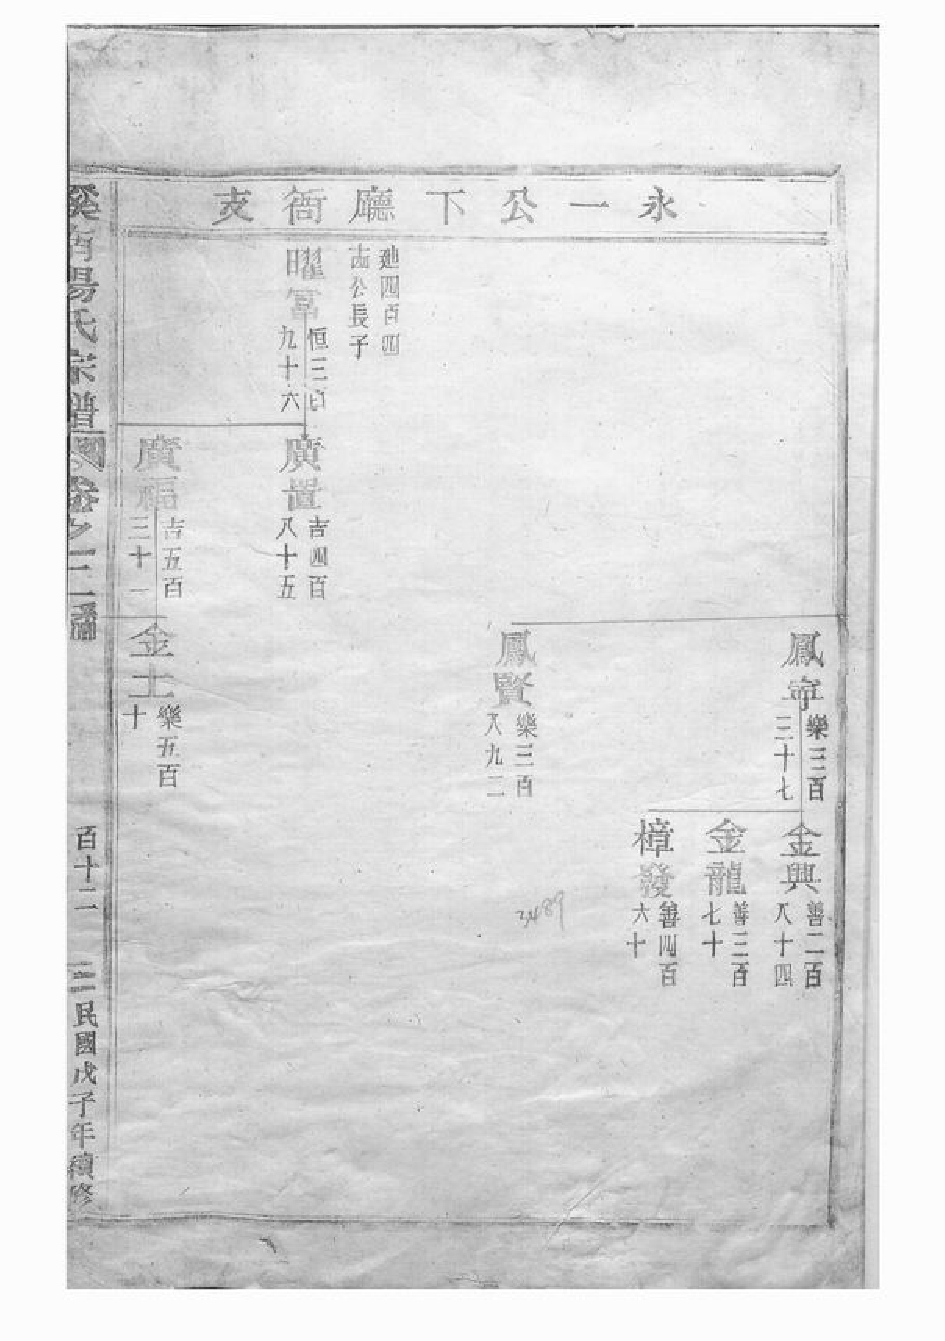 永一公下廳衙支
廸四百四
公長子
曜
恒三百
九十六
廣置
吉四百
八十五
廣福
吉五百
三十一
鳳寧
樂三百
三十七
鳳賢
樂三百
八九二
金土
樂五百
十
金興
善二百
八十四
金龍
善三百
七十
樟發
善四百
六十
3489
溪南楊氏宗譜
卷之
百十二
民國戊子年續修